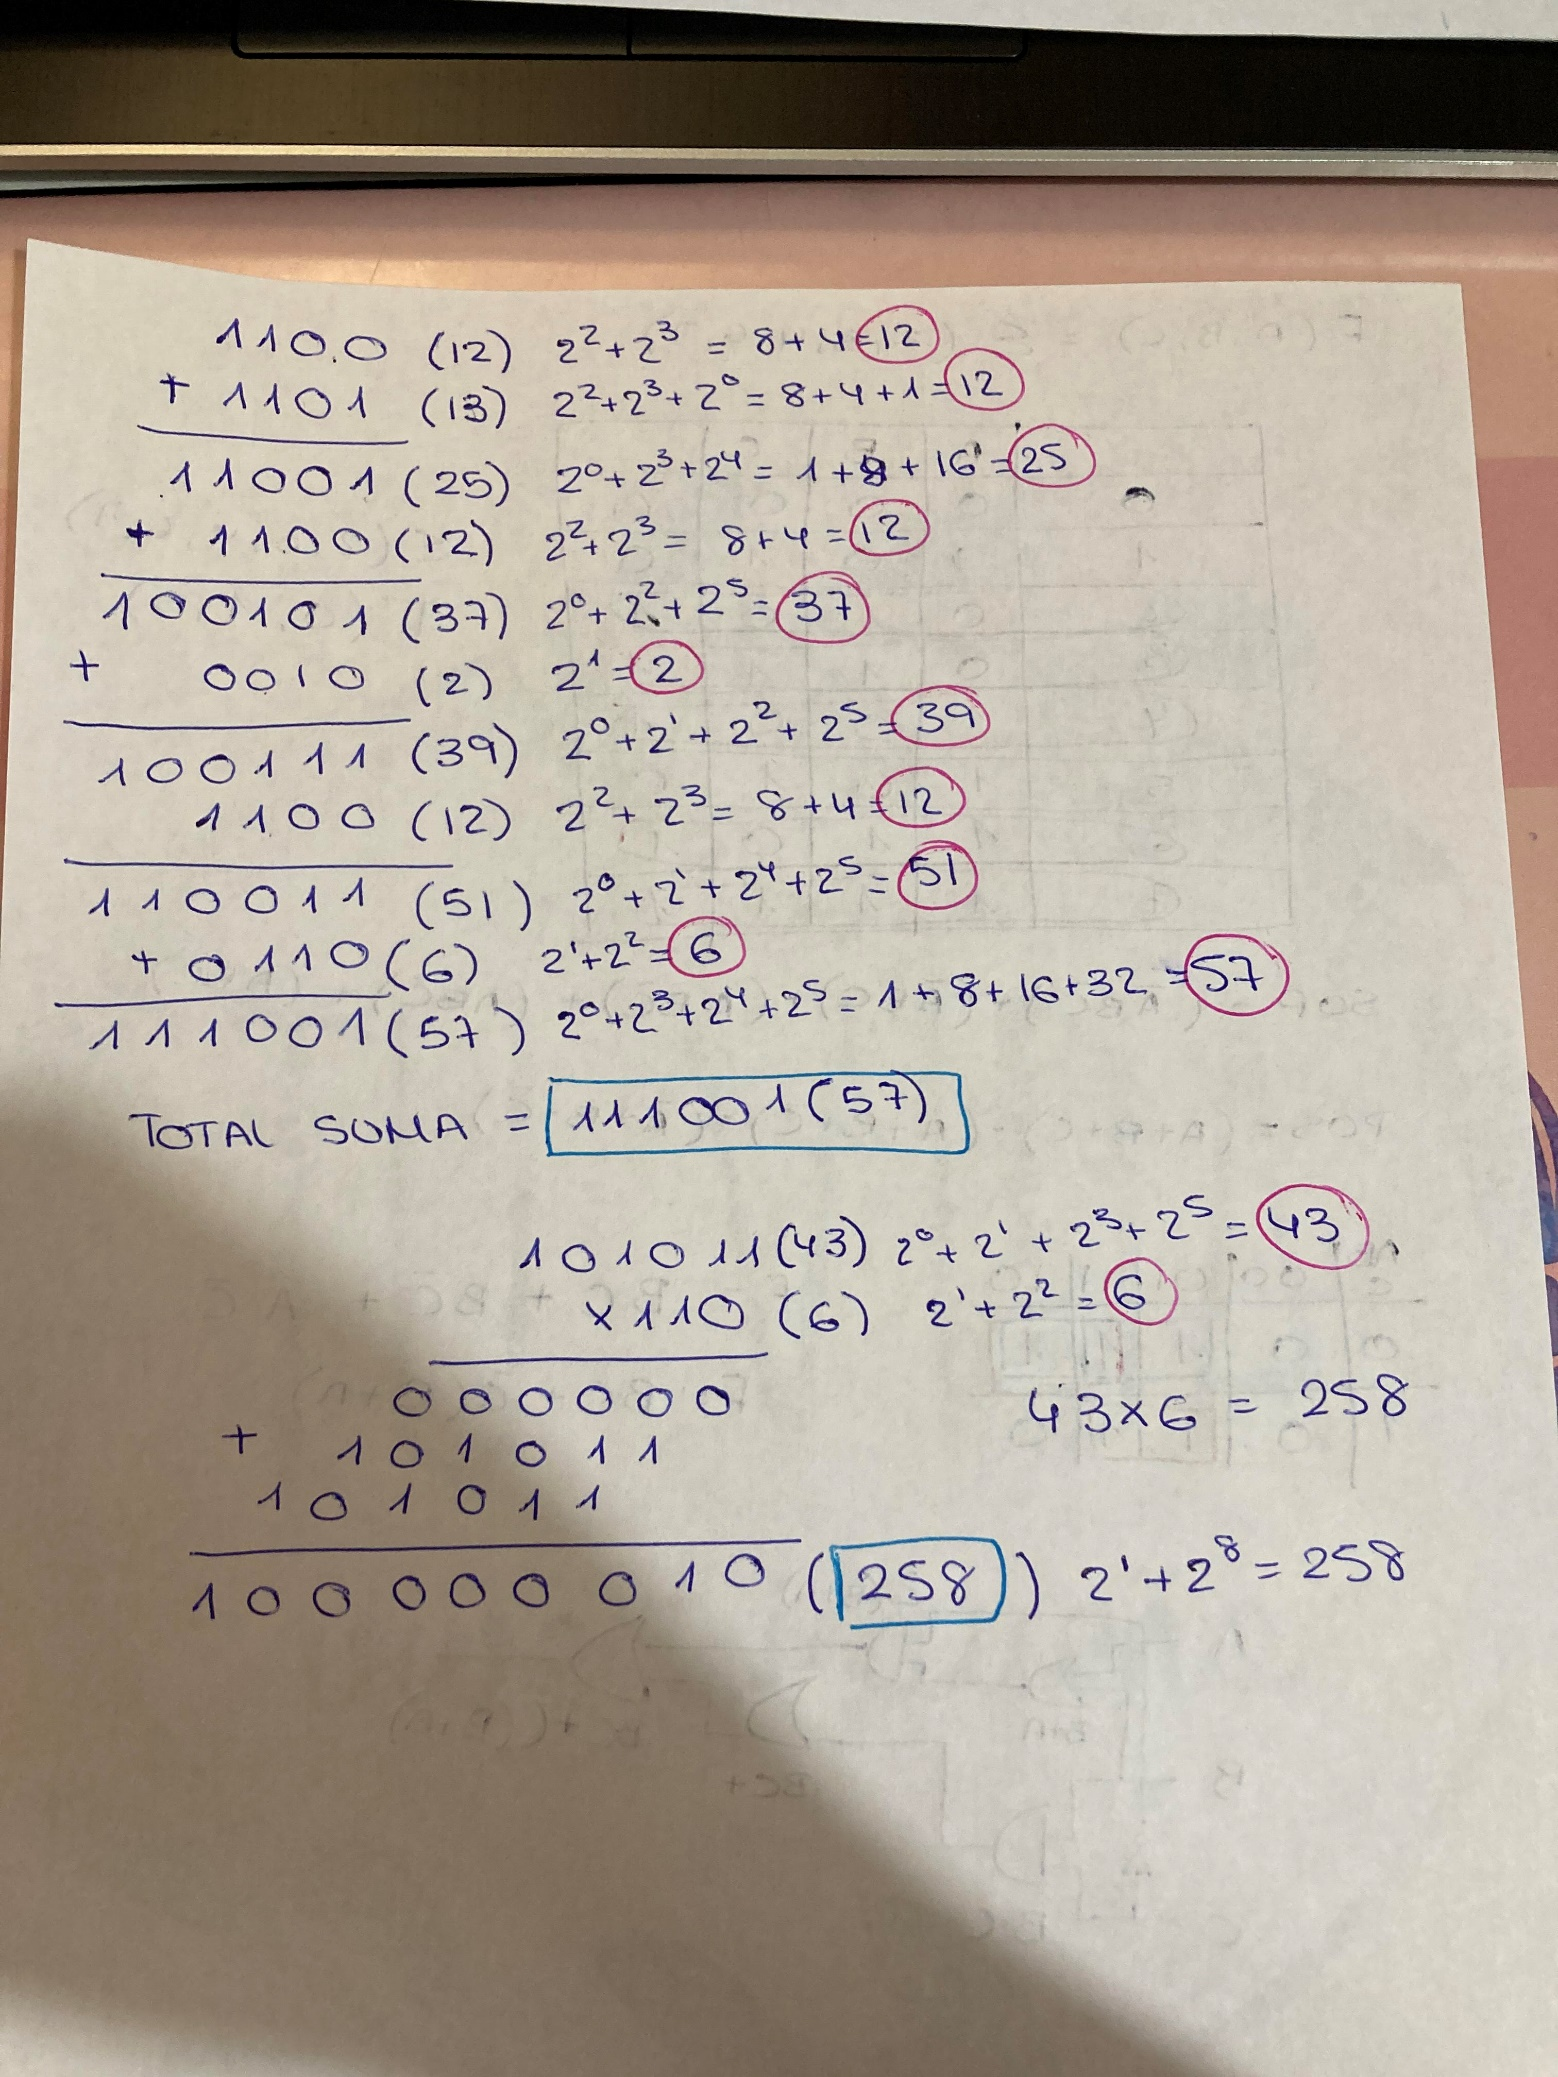 1100 (12) 2²+2³ = 8+4=12
+ 1101 (13) 2²+2³+2⁰=8+4+1=12
11001 (25) 2⁰+2³+2⁴= 1+8+16=25
+ 1100 (12) 2²+2³= 8+4=12
100101 (37) 2⁰+2²+2⁵=37
+ 0010 (2) 2¹=2
100111 (39) 2⁰+2¹+2²+2⁵=39
1100 (12) 2²+2³= 8+4=12
110011 (51) 2⁰+2¹+2⁴+2⁵=51
+ 0110 (6) 2¹+2²=6
111001 (57) 2⁰+2³+2⁴+2⁵=1+8+16+32=57
TOTAL SUMA = 111001(57)
101011(43) 2⁰+2¹+2³+2⁵=43
x110 (6) 2¹+2²=6
000000
43x6 = 258
+ 101011
101011
100000010 (258) 2¹+2⁸=258